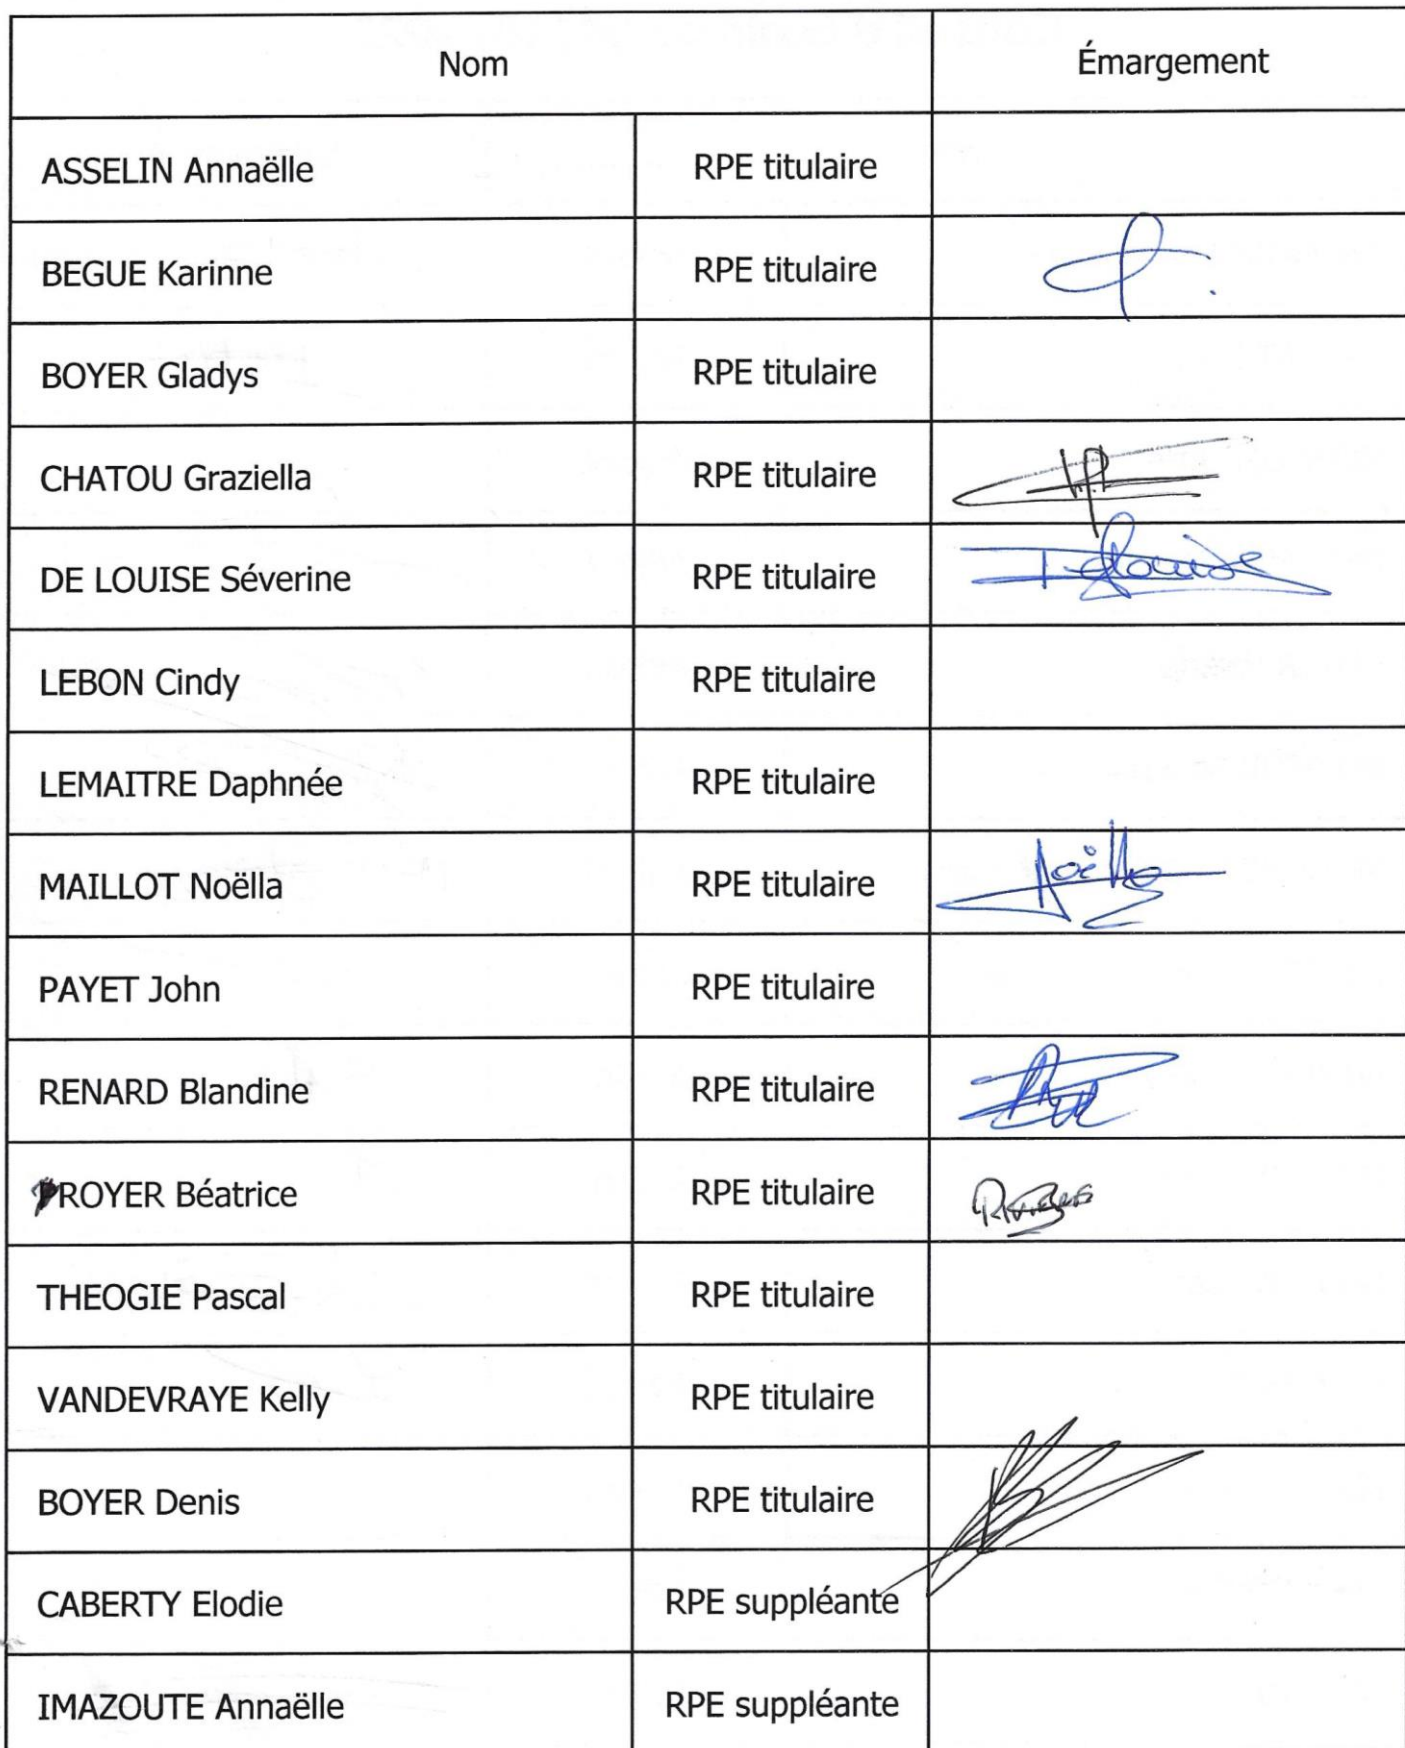 Nom Émargement
ASSELIN Annaëlle RPE titulaire
BEGUE Karinne RPE titulaire
BOYER Gladys RPE titulaire
CHATOU Graziella RPE titulaire
DE LOUISE Séverine RPE titulaire Delouise
LEBON Cindy RPE titulaire
LEMAITRE Daphnée RPE titulaire
MAILLOT Noëlla RPE titulaire Noëlla
PAYET John RPE titulaire
RENARD Blandine RPE titulaire
ROYER Béatrice RPE titulaire
THEOGIE Pascal RPE titulaire
VANDEVRAYE Kelly RPE titulaire
BOYER Denis RPE titulaire
CABERTY Elodie RPE suppléante
IMAZOUTE Annaëlle RPE suppléante